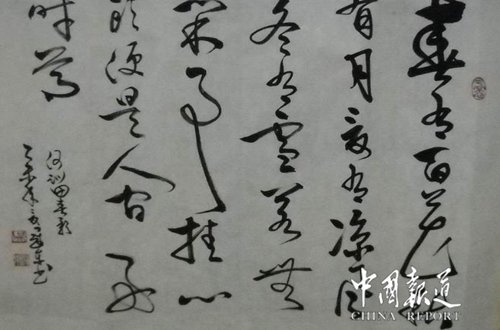 春有百花秋
有月夏有凉風
冬有雪若無
閑事挂心
頭便是人间好
时节
中国報道
CHINA REPORT